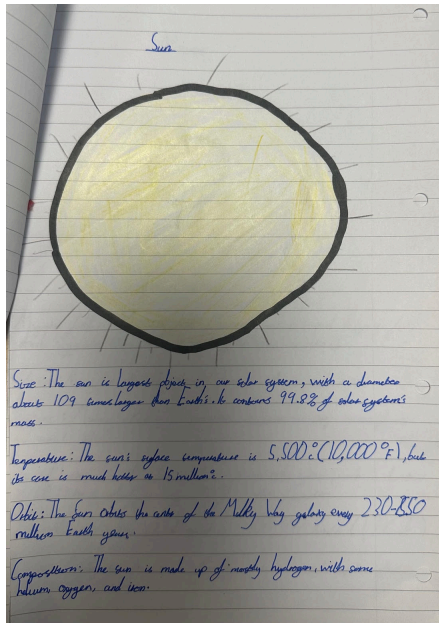 Sun
Size: The sun is largest object in our solar system, with a diameter
about 109 times larger than Earth's. It contains 99.8% of solar system's
mass.
Temperature: The sun's surface temperature is 5,500°c (10,000°F), but
its core is much hotter at 15 million°c.
Orbit: The Sun orbits the centre of the Milky Way galaxy every 230-250
million Earth years.
Composition: The sun is made up of mostly hydrogen, with some
helium, oxygen, and iron.